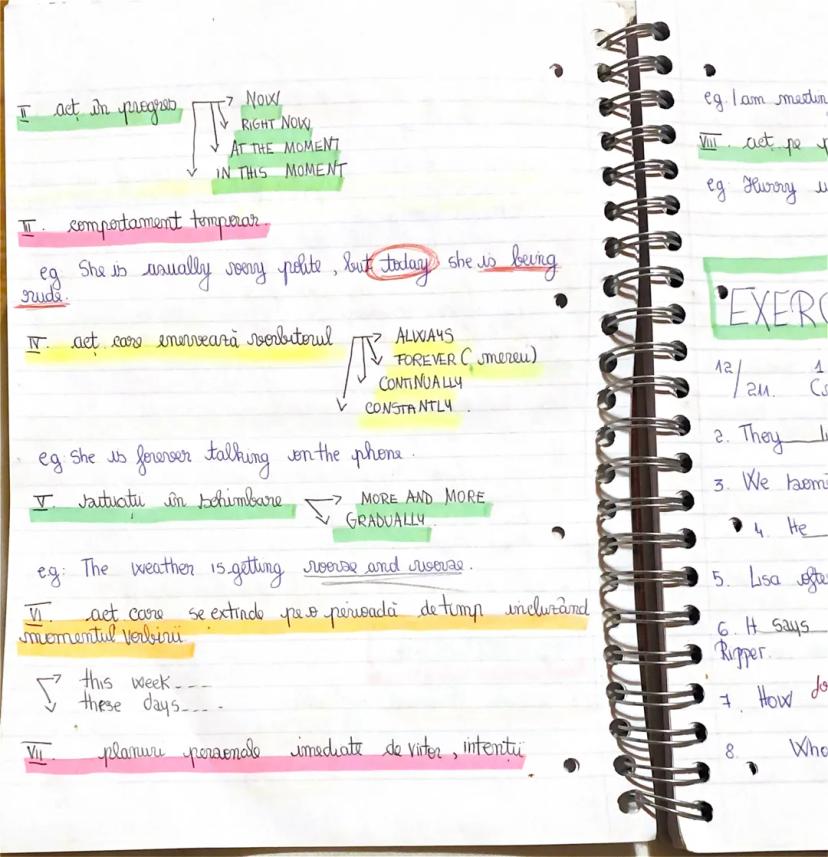 II act in progres NOW
RIGHT NOW
AT THE MOMENT
IN THIS MOMENT
II. comportament temporar.
eg She is usually very polite, but today she is being
rude.
IV. act care enervează vorbitorul ALWAYS
FOREVER (mereu)
CONTINUALLY
CONSTANTLY.
eg: She is forever talking on the phone.
V. situatii în schimbare MORE AND MORE
GRADUALLY.
eg: The weather is getting worse and worse.
VI. act care se extinde pe o perioadă de timp incluzând
momentul vorbirii
this week----
these days----
VII. planuri personale imediate de viitor, intenții
eg. I am
VIII. act pe
eg: Hurry
EXERC
12/211. 1
2. They
3. We
4. He
5. Lisa
6. It says
Ripper.
7. How do
8. Who